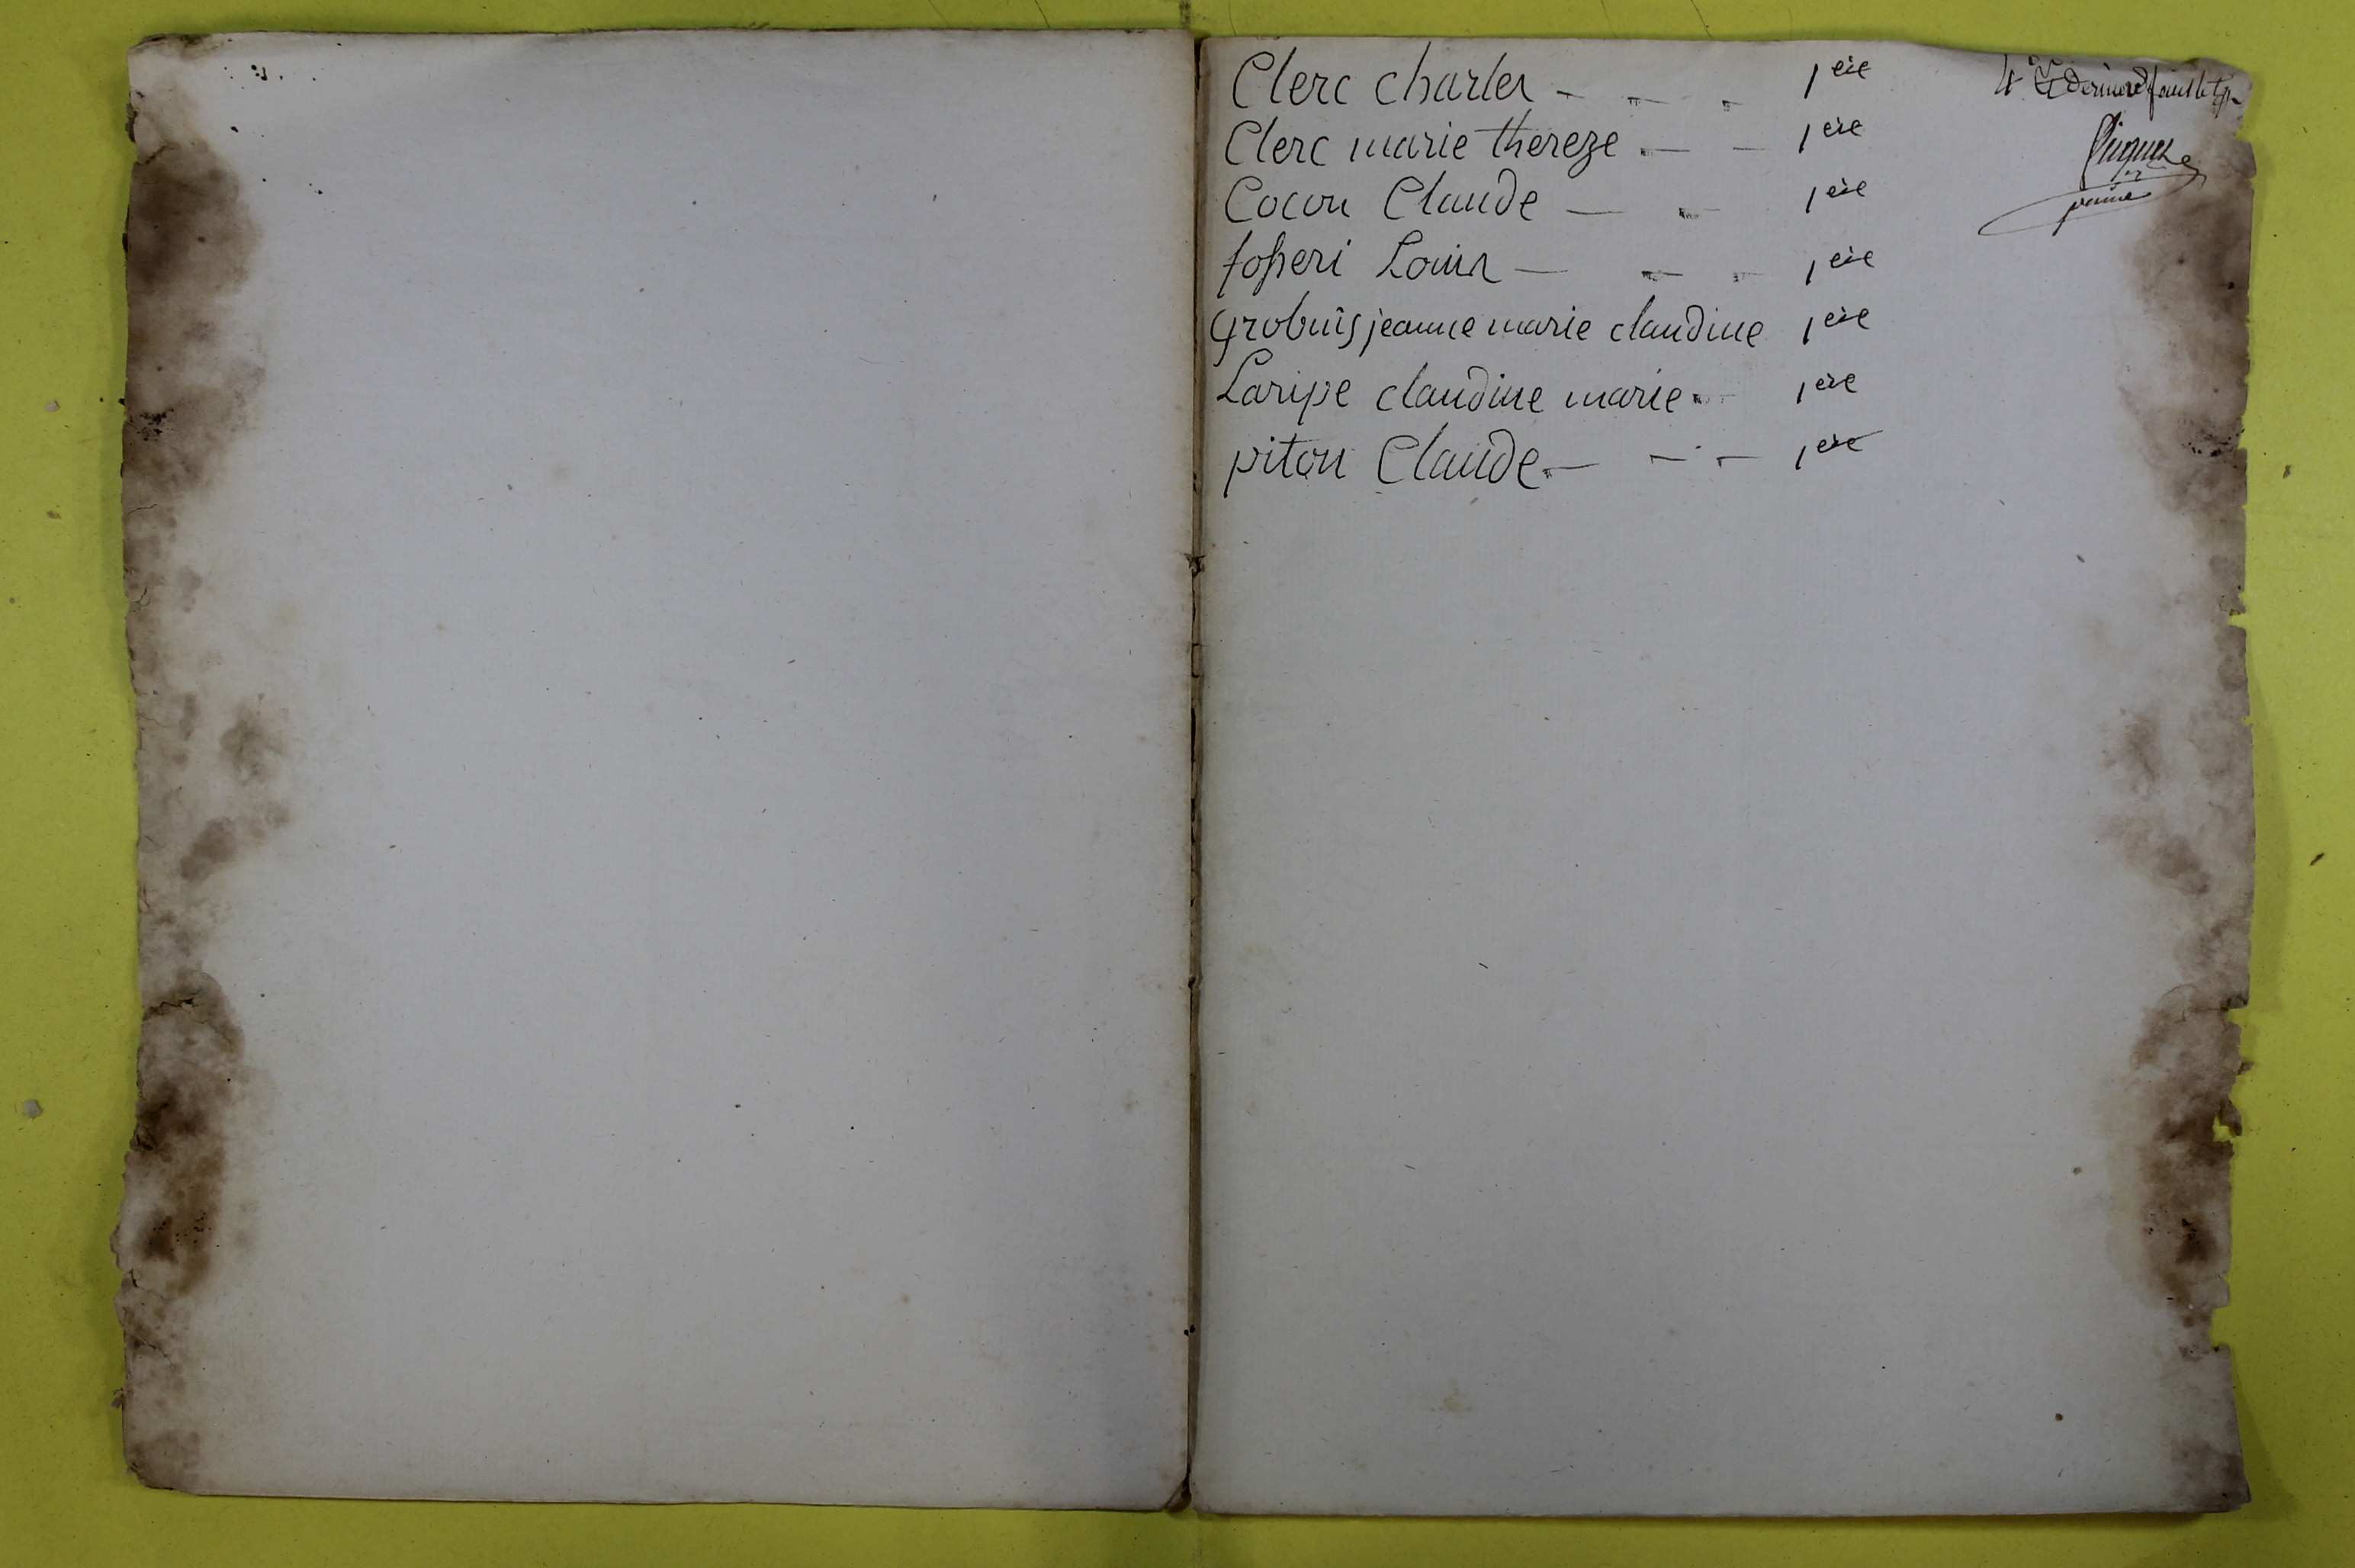 Clerc charles - - - 1ere
Clerc marie thereze - - 1ere
Cocon Claude - - 1ere
fosseri Louis - - - 1ere
Grobuis jeanne marie claudine 1ere
Laripe claudine marie - 1ere
piton Claude - - - 1ere
4e et derniere feuillet